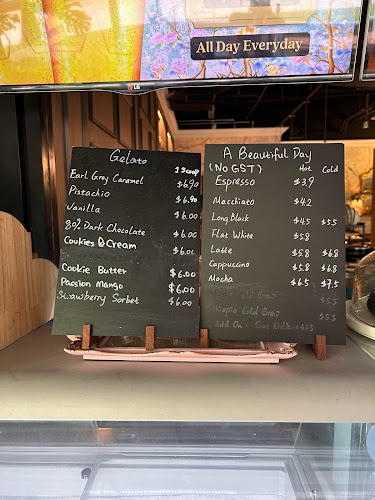 All Day Everyday
LG
Gelato
1 scoop
Earl Grey Caramel $6.90
Pistachio $6.90
Vanilla $6.00
80% Dark Chocolate $6.00
Cookies & Cream $6.00
Cookie Butter $6.00
Passion Mango $6.00
Strawberry Sorbet $6.00
A Beautiful Day
(No GST) Hot Cold
Espresso $3.9
Macchiato $4.2
Long Black $4.5 $5.5
Flat White $5.8
Latte $5.8 $6.8
Cappuccino $5.8 $6.8
Mocha $6.5 $7.5
Cold Brew $5.5
Cold Brew $5.5
Add On - Oat Milk